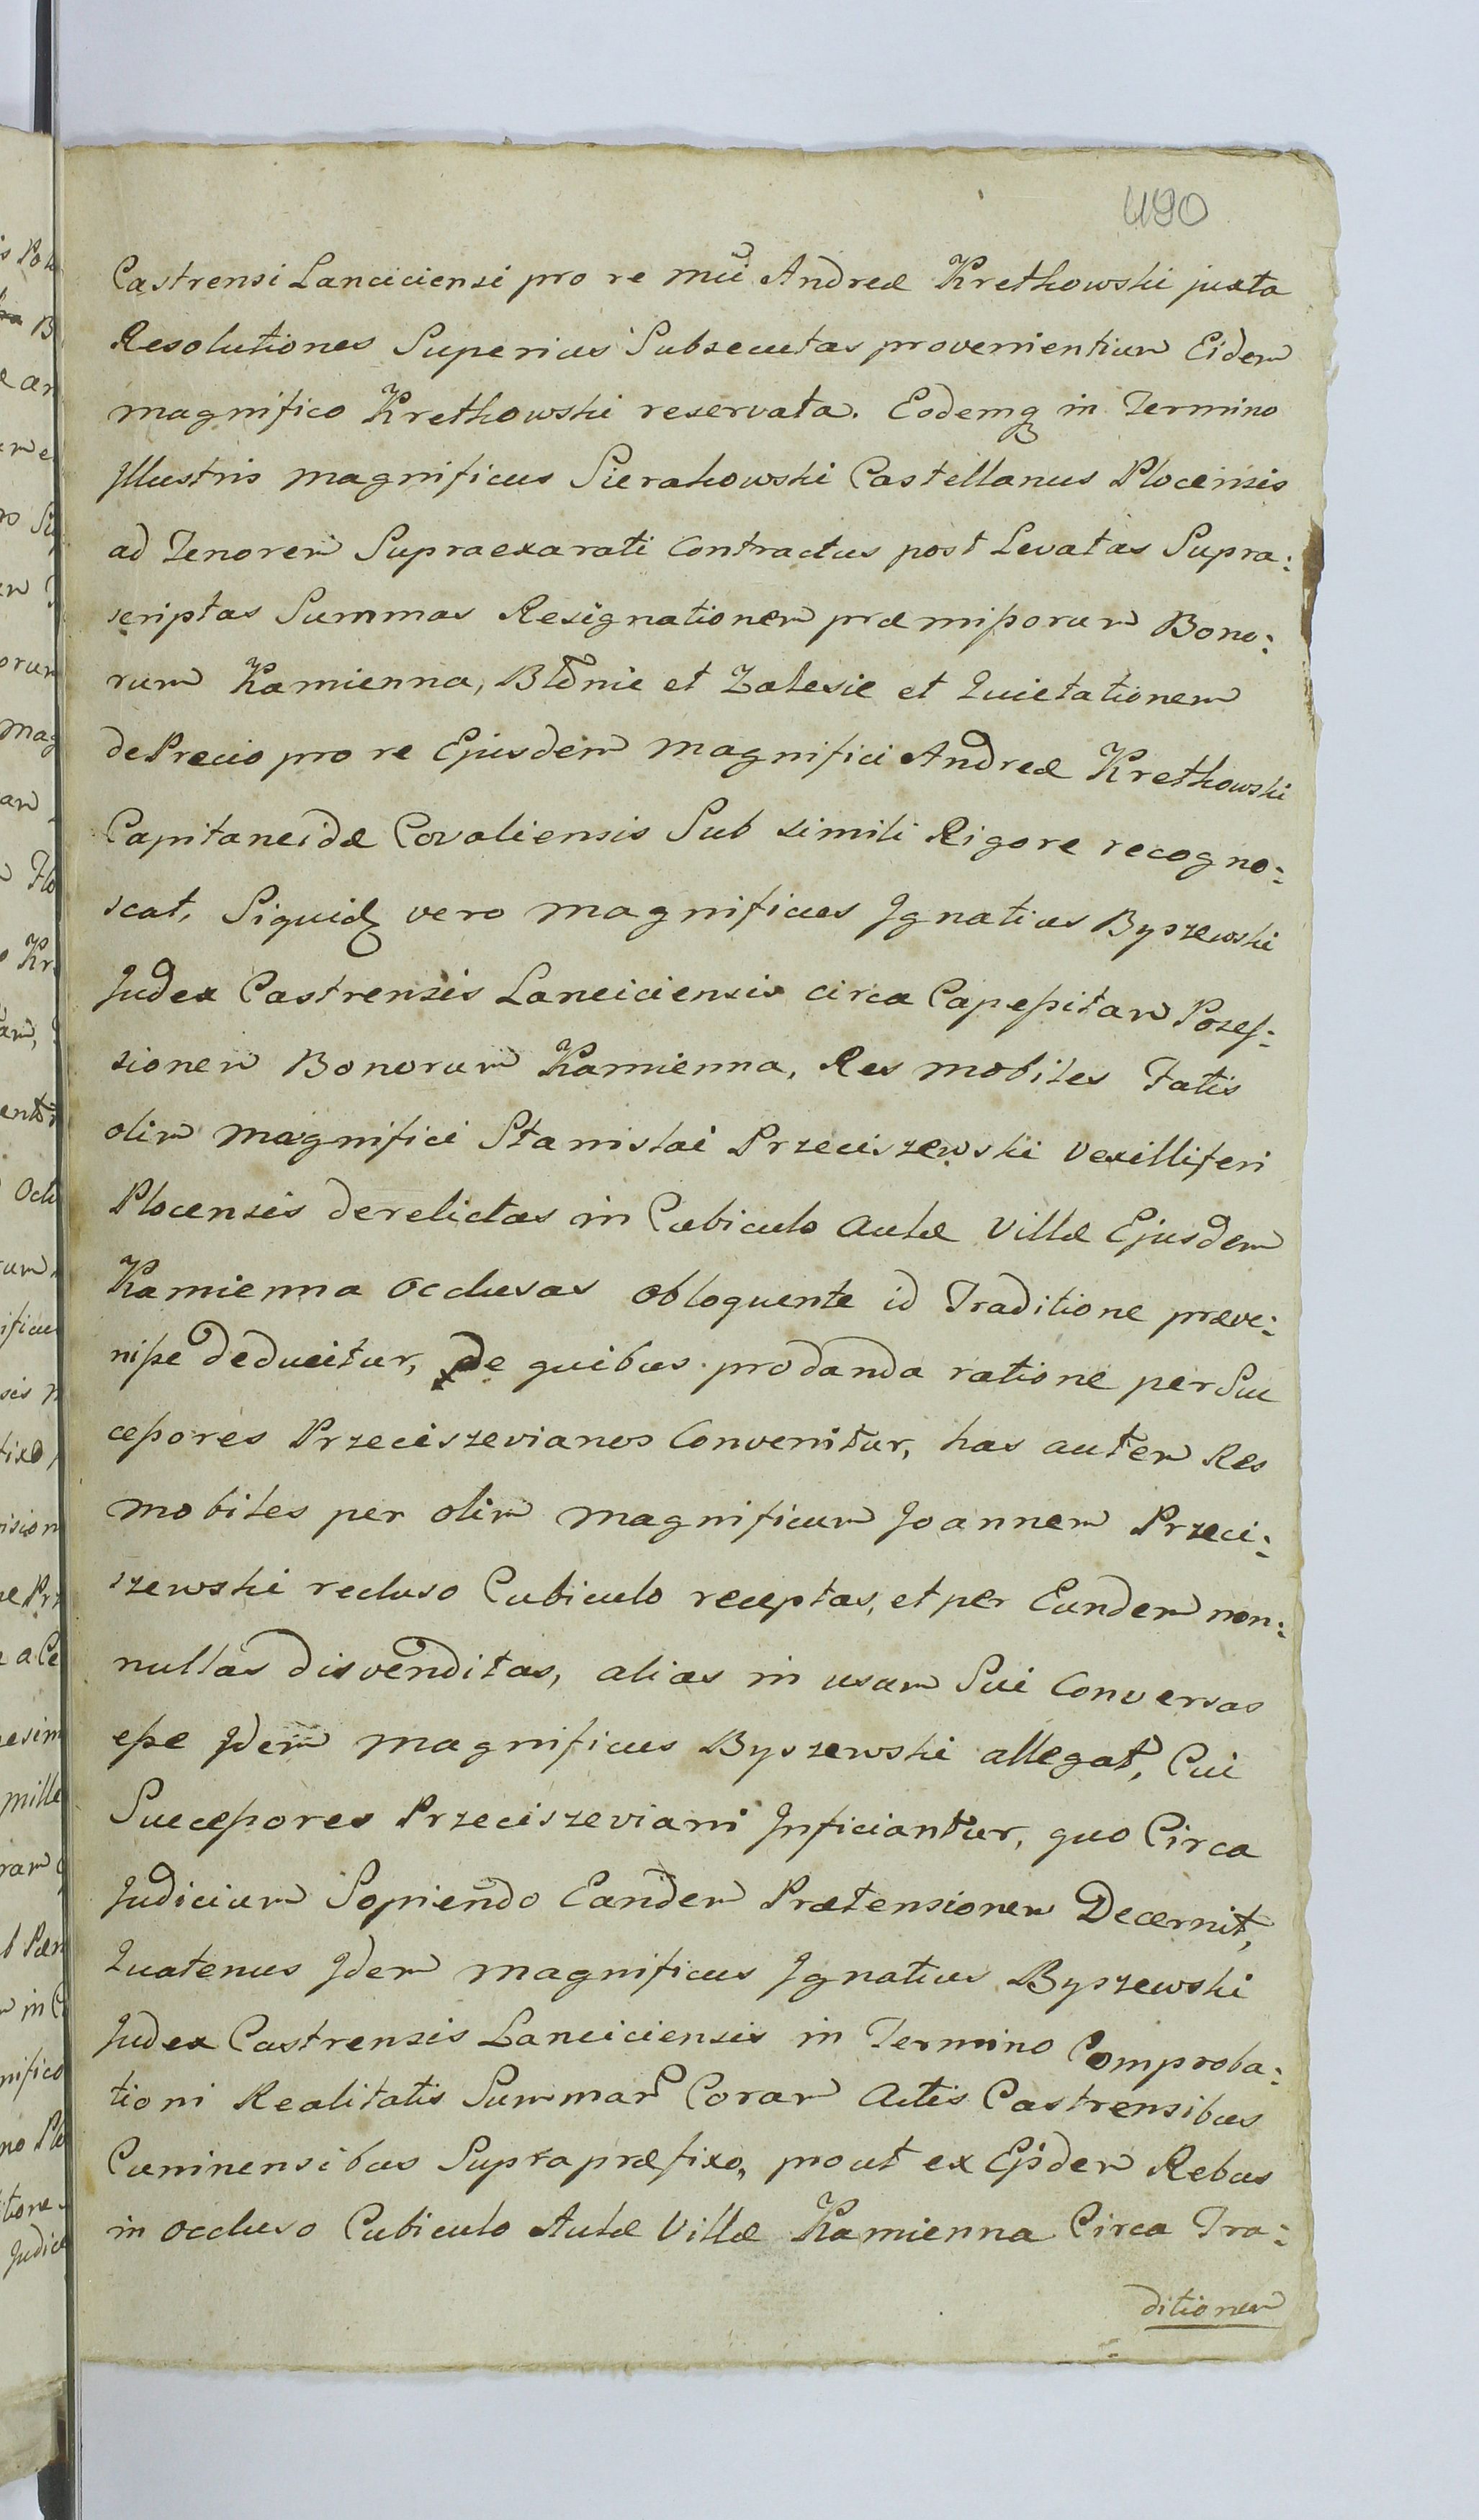 490
Castrensi Lanciciensi pro re mci Andreæ Krethowski juxta
Resolutiones Superius Subsecutas provenientium Eidem
magnifico Krethowski reservata. Eodemq in Termino
Jllustris magnificus Sierakowski Castellanus Plocensis
ad Tenorem Supraexarati Contractus post Levatas Supra:
scriptas Summas Resignationem præmißorum Bono:
rum Kamienna, Błonie et Zalesie et Quietationem
de Precio pro re Ejusdem magnifici Andreæ Krethowski
Capitaneidæ Covaliensis Sub simili Rigore recogno:
scat, Siquid vero magnificus Jgnatius Byszewski
Judex Castrensis Lanciciensis circa Capeßitam Poseſ:
sionem Bonorum Kamienna, Res mobiles Fatis
olim magnifici Stanislai Przeciszewski Vexilliferi
Plocensis derelictas in Cubiculo aulæ Villæ Ejusdem
Kamienna occlusas obloquente id Traditione præve:
niße deducitur, de quibus pro danda ratione per Suc
ceßores Przeciszevianos Convenitur, has autem Res
mobiles per olim magnificum Joannem Przeci:
szewski recluso Cubiculo receptas, et per Eundem non:
nullas disvenditas, alias in usum Sui Conversas
eße Jdem magnificus Byszewski allegat, Cui
Succeßores Przeciszeviani Jnficiantur, quo Circa
Judicium Sopiendo Eandem Prætensionem Decernit,
Quatenus Jdem magnificus Jgnatius Byszewski
Judex Castrensis Lanciciensis in Termino Comproba:
tioni Realitatis Summar Coram Actis Castrensibus
Cuninensibus Supra præfixo, prout ex Ejsdem Rebus
in occluso Cubiculo Aulæ Villæ Kamienna Circa Tra:
ditionem